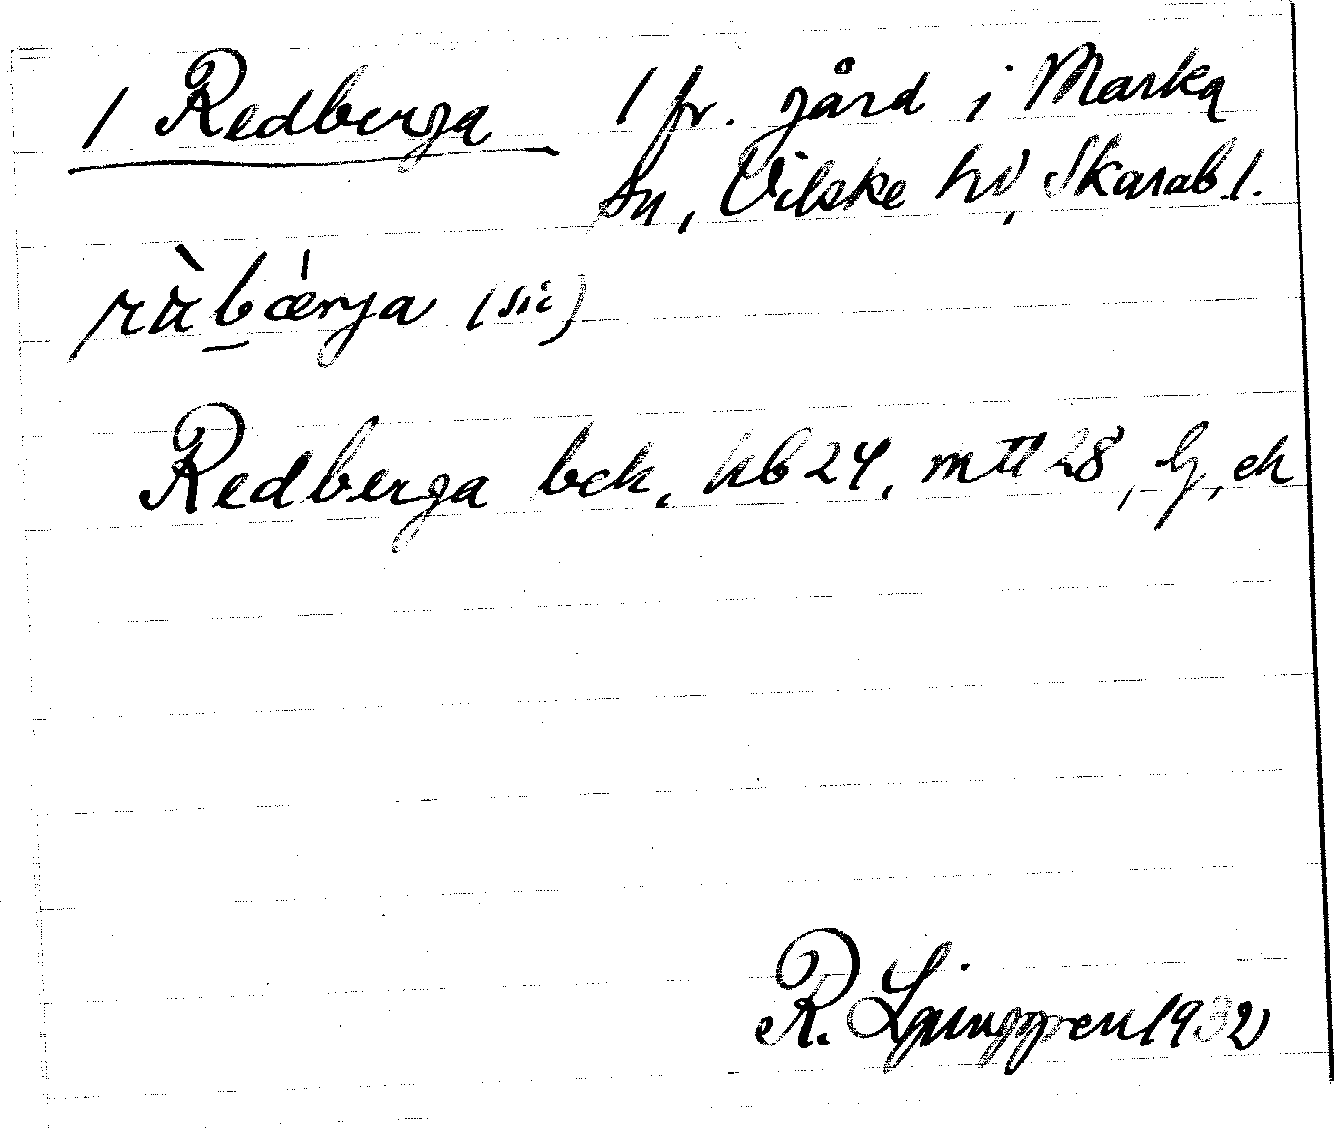 1 Redberga 1 fr. gård i Marka
sn, Vilske hd, Skarab. l.
bærja (sic)
Redberga bek. hb 24, mtl 28, lj, ek
R. Ljunggren 1932